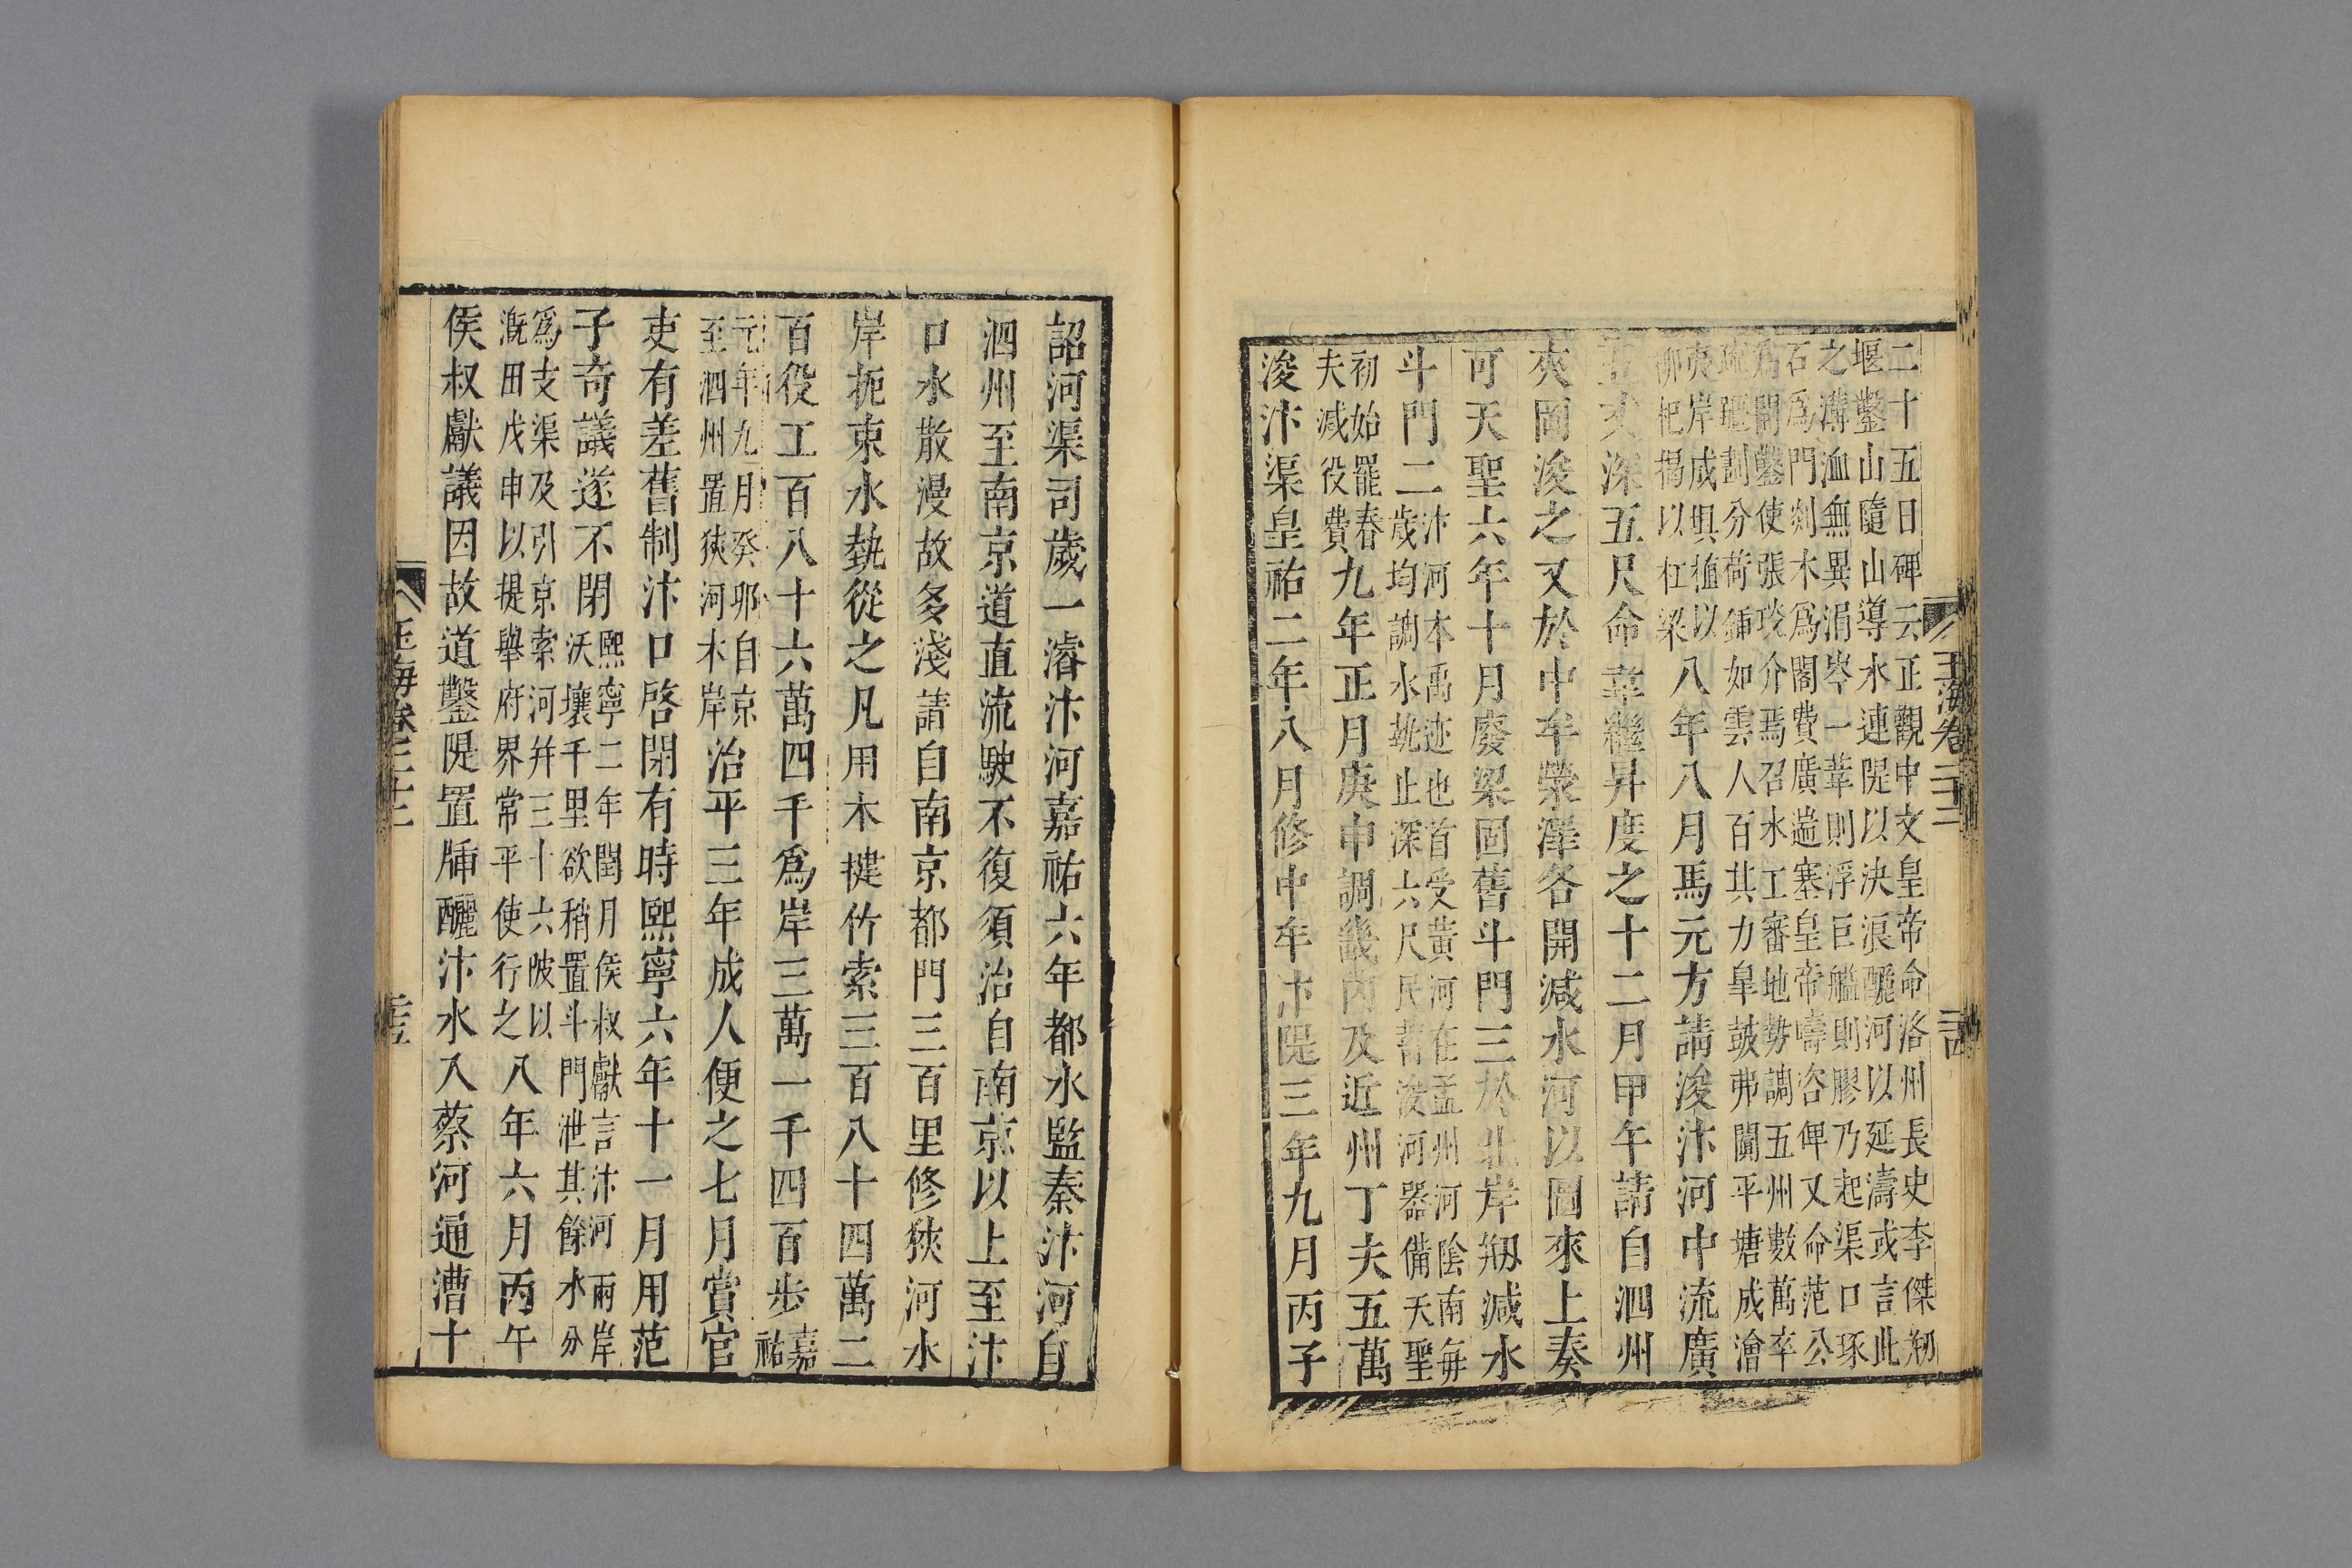 二十五日碑云正觀中文皇帝命洛州長史李傑剏
堰鑿山隨山導水連隄以決浪釃河以延濤或言此
之溝洫無異涓岑一葦則浮巨艦則膠乃起渠口琢
石爲門剡木爲閣費廣遄塞皇帝嚋咨俾又命范公
爲開鑿使張琰介焉召水工審地勢調五州數萬卒
畚劃分荷鍤如雲人百其力皐鼓弗闐平塘成澮
夷岸成坦植以
柳杞揭以杠梁
八年八月馬元方請浚汴河中流廣
五丈深五尺命韋繼昇度之十二月甲午請自泗州
夾岡浚之又於中牟滎澤各開減水河以圖來上奏
可天聖六年十月廢梁固舊斗門三於北岸剏減水
斗門二
汴河本禹迹也首受黃河在孟州河陰南每
歲均調水埶止深六尺民蓄浚河器備天聖
初始罷春
夫減役費
九年正月庚申調畿內及近州丁夫五萬
浚汴渠皇祐二年八月修中牟汴隄三年九月丙子
玉海卷二十二
詔河渠司歲一濬汴河嘉祐六年都水監奏汴河自
泗州至南京道直流駛不復須治自南京以上至汴
口水散漫故多淺請自南京都門三百里修狹河水
岸扼束水埶從之凡用木揵竹索三百八十四萬二
百役工百八十六萬四千爲岸三萬一千四百步
嘉
祐
元年九月癸卯自京
至泗州置狹河木岸
治平三年成人便之七月賞官
吏有差舊制汴口啓閉有時熙寧六年十一月用范
子奇議遂不閉
熙寧二年閏月侯叔獻言汴河兩岸
沃壤千里欲稍置斗門泄其餘水分
爲支渠及引京索河并三十六陂以
漑田戊申以提舉府界常平使行之
八年六月丙午
侯叔獻議因故道鑿隄置牐釃汴水入蔡河通漕十
玉海卷二十二